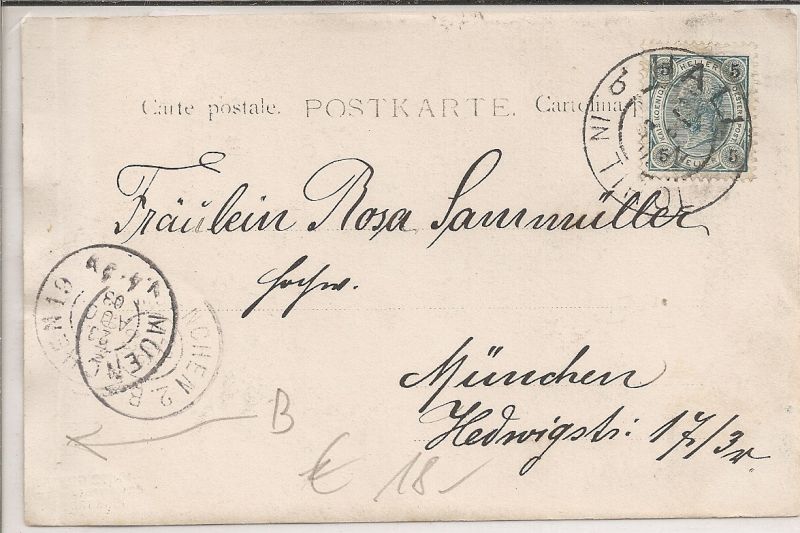 Carte postale. POSTKARTE. Cartolina
5 HELLER 5
5 HELLER 5
HALL
Fräulein Rosa Sammüller
hochw.
München
Hedwigstr: 17/3r
MUEN
CHEN 2 B
B
€ 18-